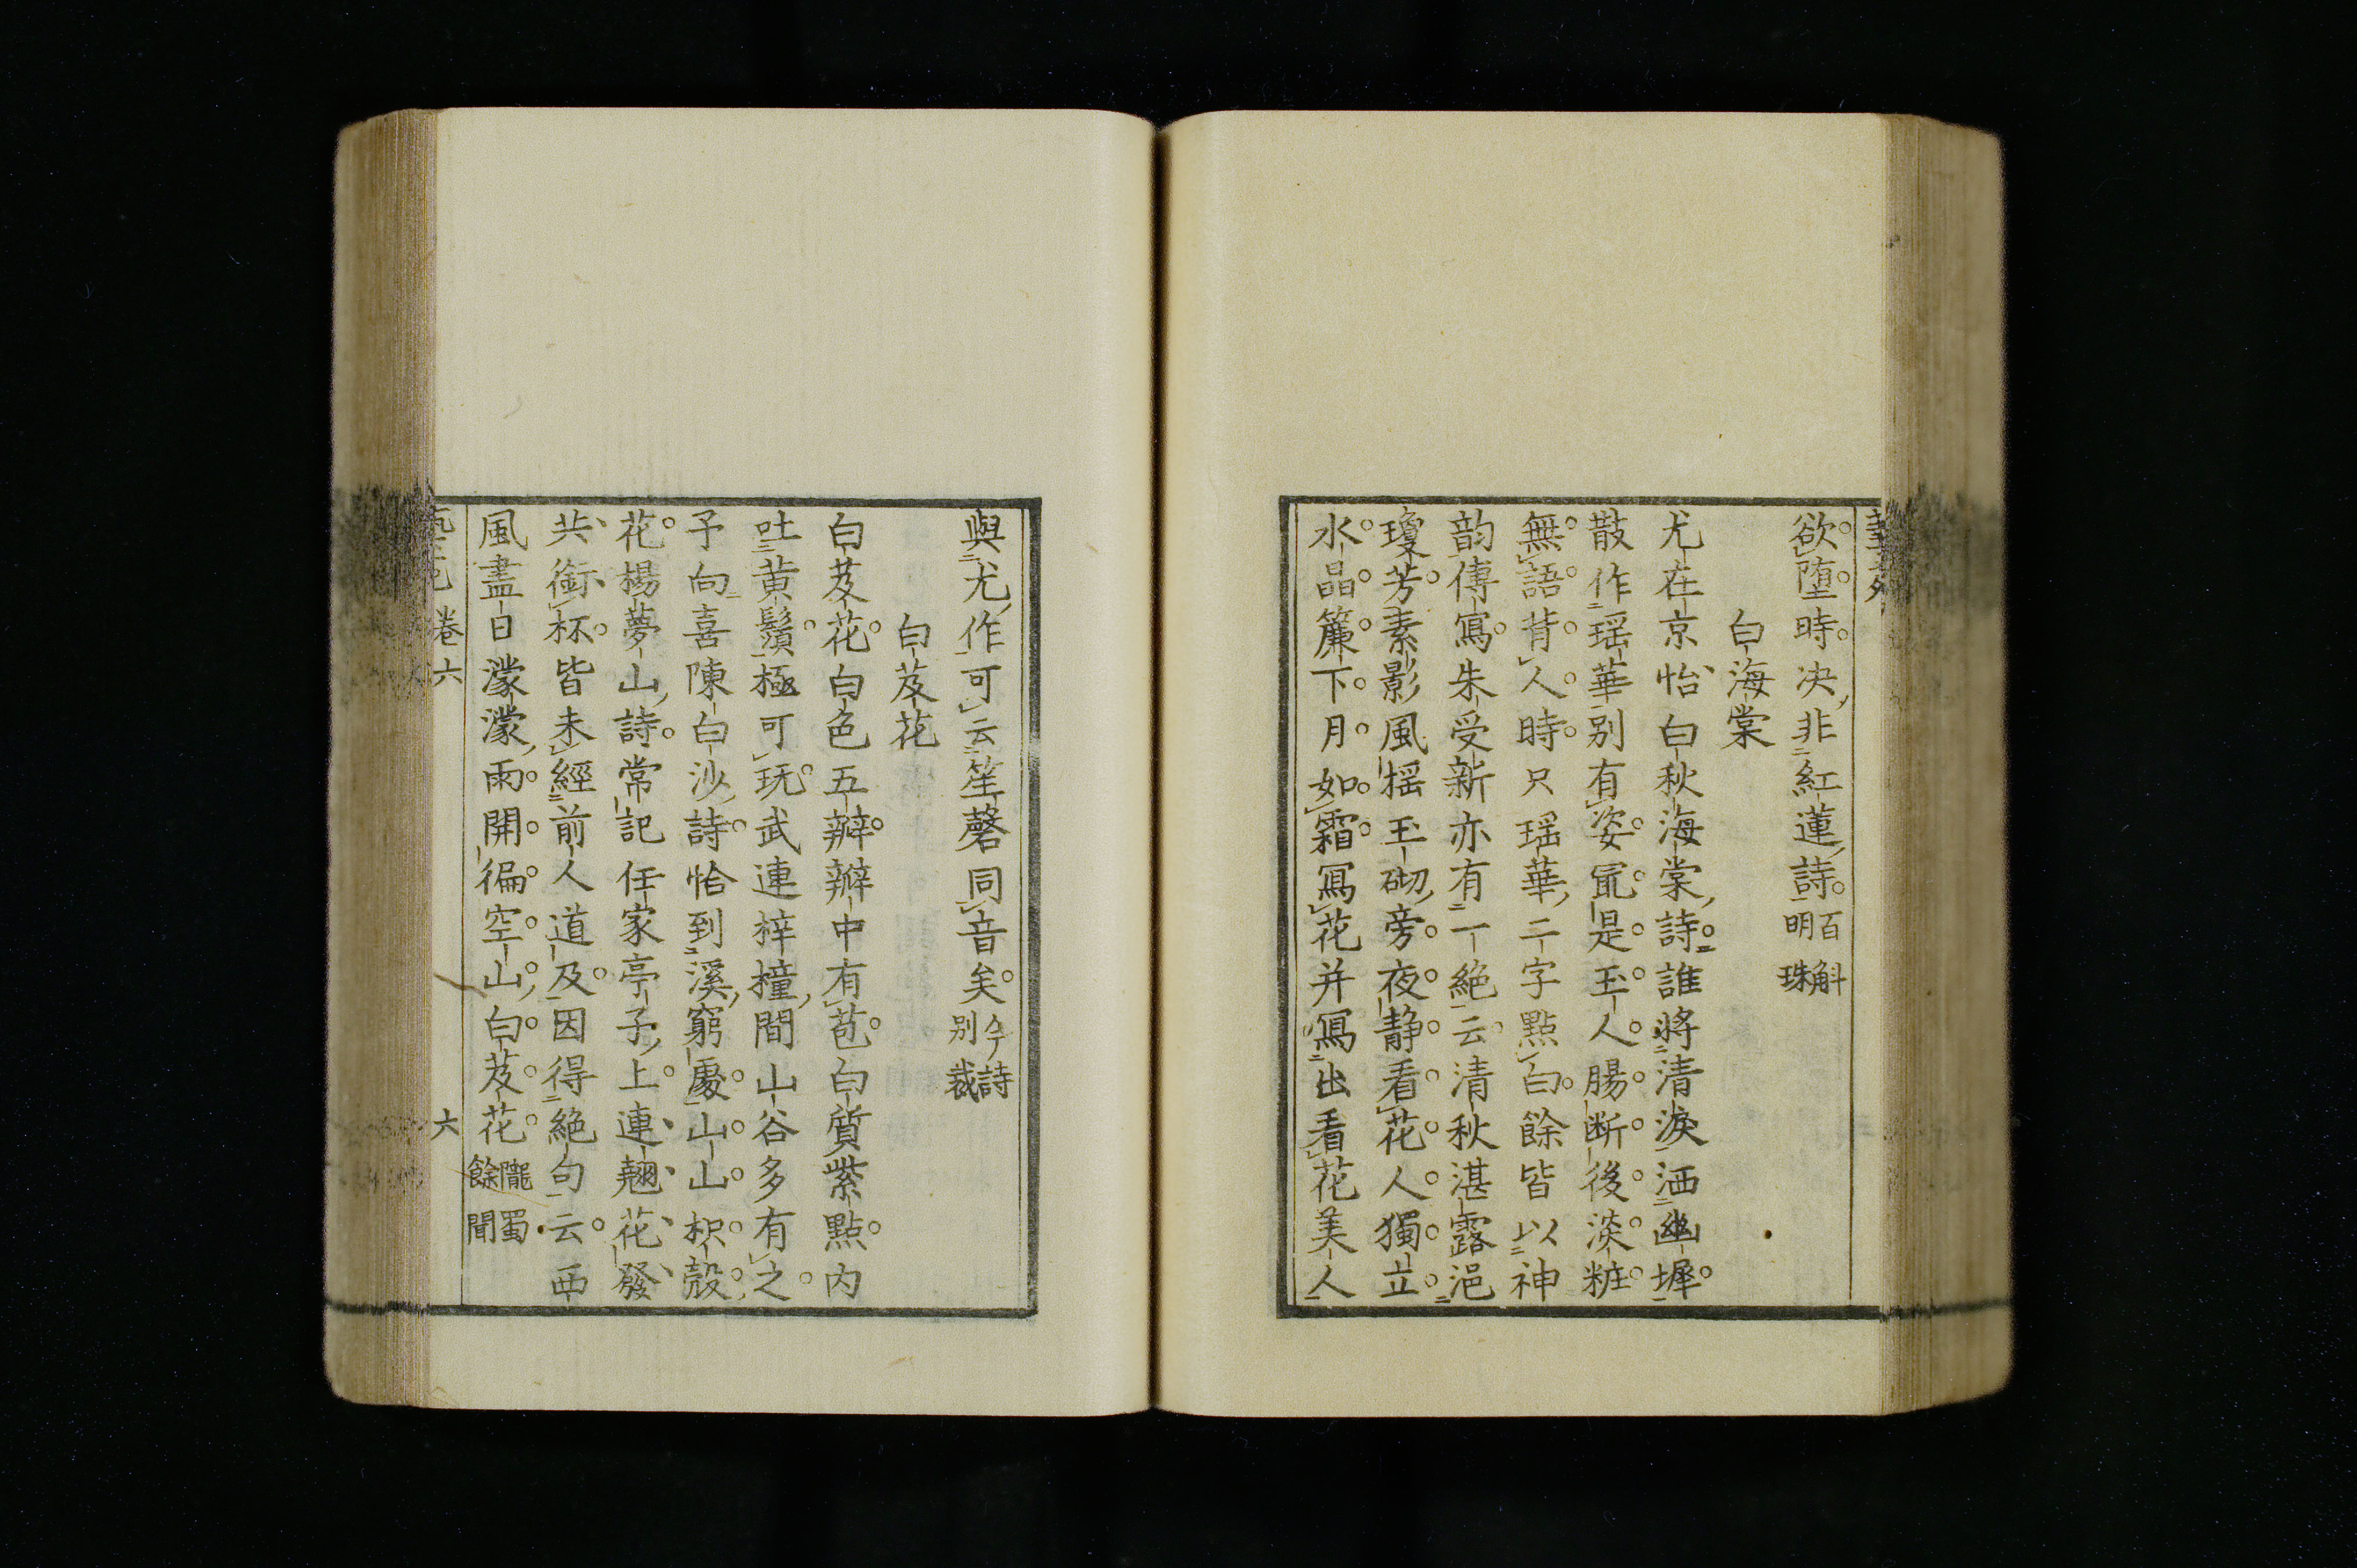 欲墮時决非紅蓮詩百斛明珠
白海棠
尤在京怡白秋海棠詩誰將清淚洒幽墀
散作瑶華别有姿寍是玉人腸断後淡粧
無語背人時只瑶華二字點白餘皆以神
韵傳寫朱受新亦有一絶云清秋湛露浥
瓊芳素影風摇玉砌旁夜静看花人獨立
水晶簾下月如霜寫花并寫出看花美人
與尤作可云笙磬同音矣今詩别裁
白芨花
白芨花白色五瓣瓣中有苞白質紫點内
吐黄鬚極可玩武連梓橦間山谷多有之
予向喜陳白沙詩恰到溪窮處山山枳殼
花楊夢山詩常記任家亭子上連翹花發
共銜杯皆未經前人道及因得絶句云西
風盡日濛濛雨開徧空山白芨花隴蜀餘聞
卷六
六